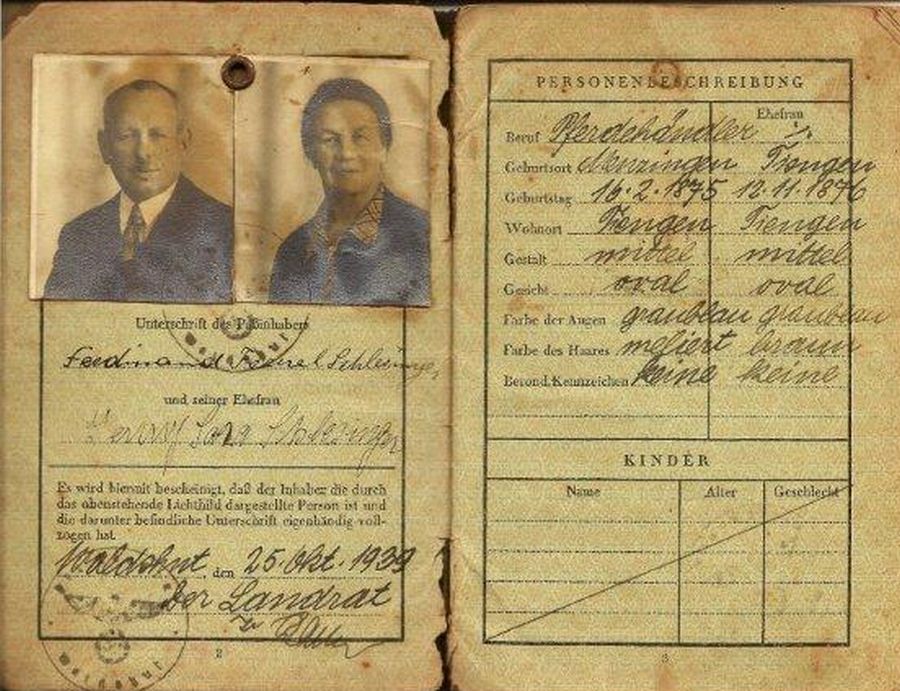 Unterschrift des Paßinhabers
Ferdinand Israel Schlesinger
und seiner Ehefrau
Sara Schlesinger
Es wird hiermit bescheinigt, daß der Inhaber die durch
das obenstehende Lichtbild dargestellte Person ist und
die darunter befindliche Unterschrift eigenhändig voll-
zogen hat.
Waldshut, den 25. Okt. 1939
Der Landrat
Waldshut
2
PERSONENBESCHREIBUNG
Ehefrau
Beruf Pferdehändler ./.
Geburtsort Menzingen Tiengen
Geburtstag 16.2.1875 12.11.1876
Wohnort Tiengen Tiengen
Gestalt mittel mittel
Gesicht oval oval
Farbe der Augen graublau graublau
Farbe des Haares meliert braun
Besond. Kennzeichen keine keine
KINDER
Name Alter Geschlecht
3